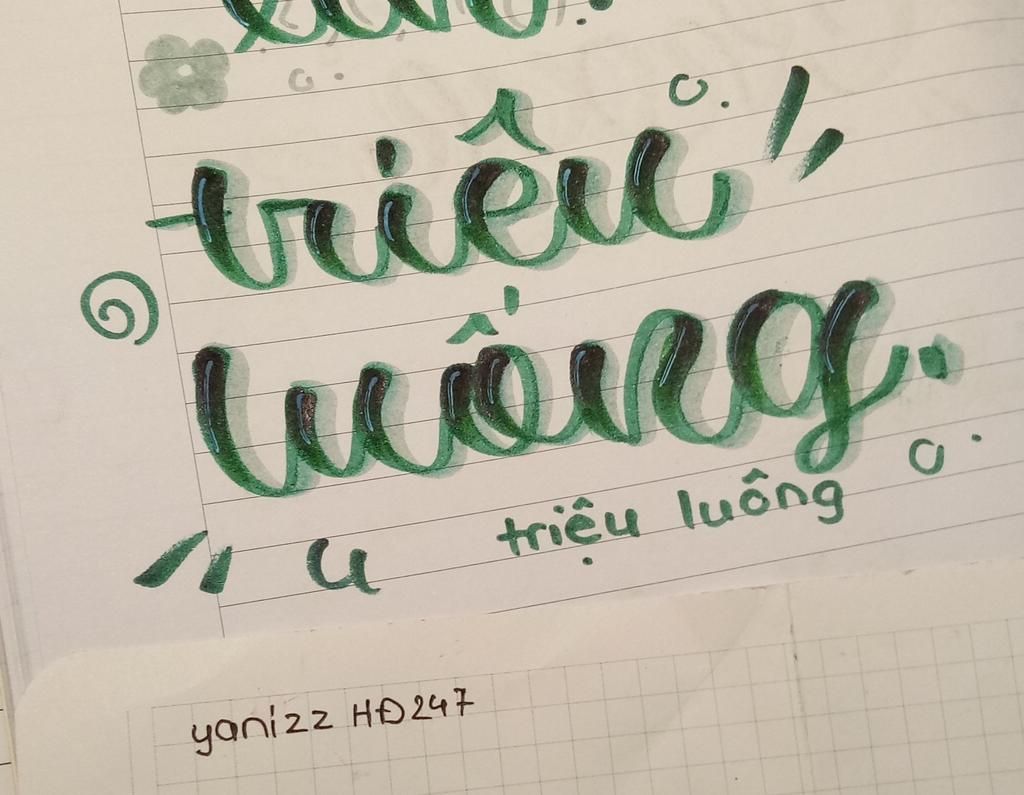 triêu
luống.
triệu luông
u
yanizz HĐ247